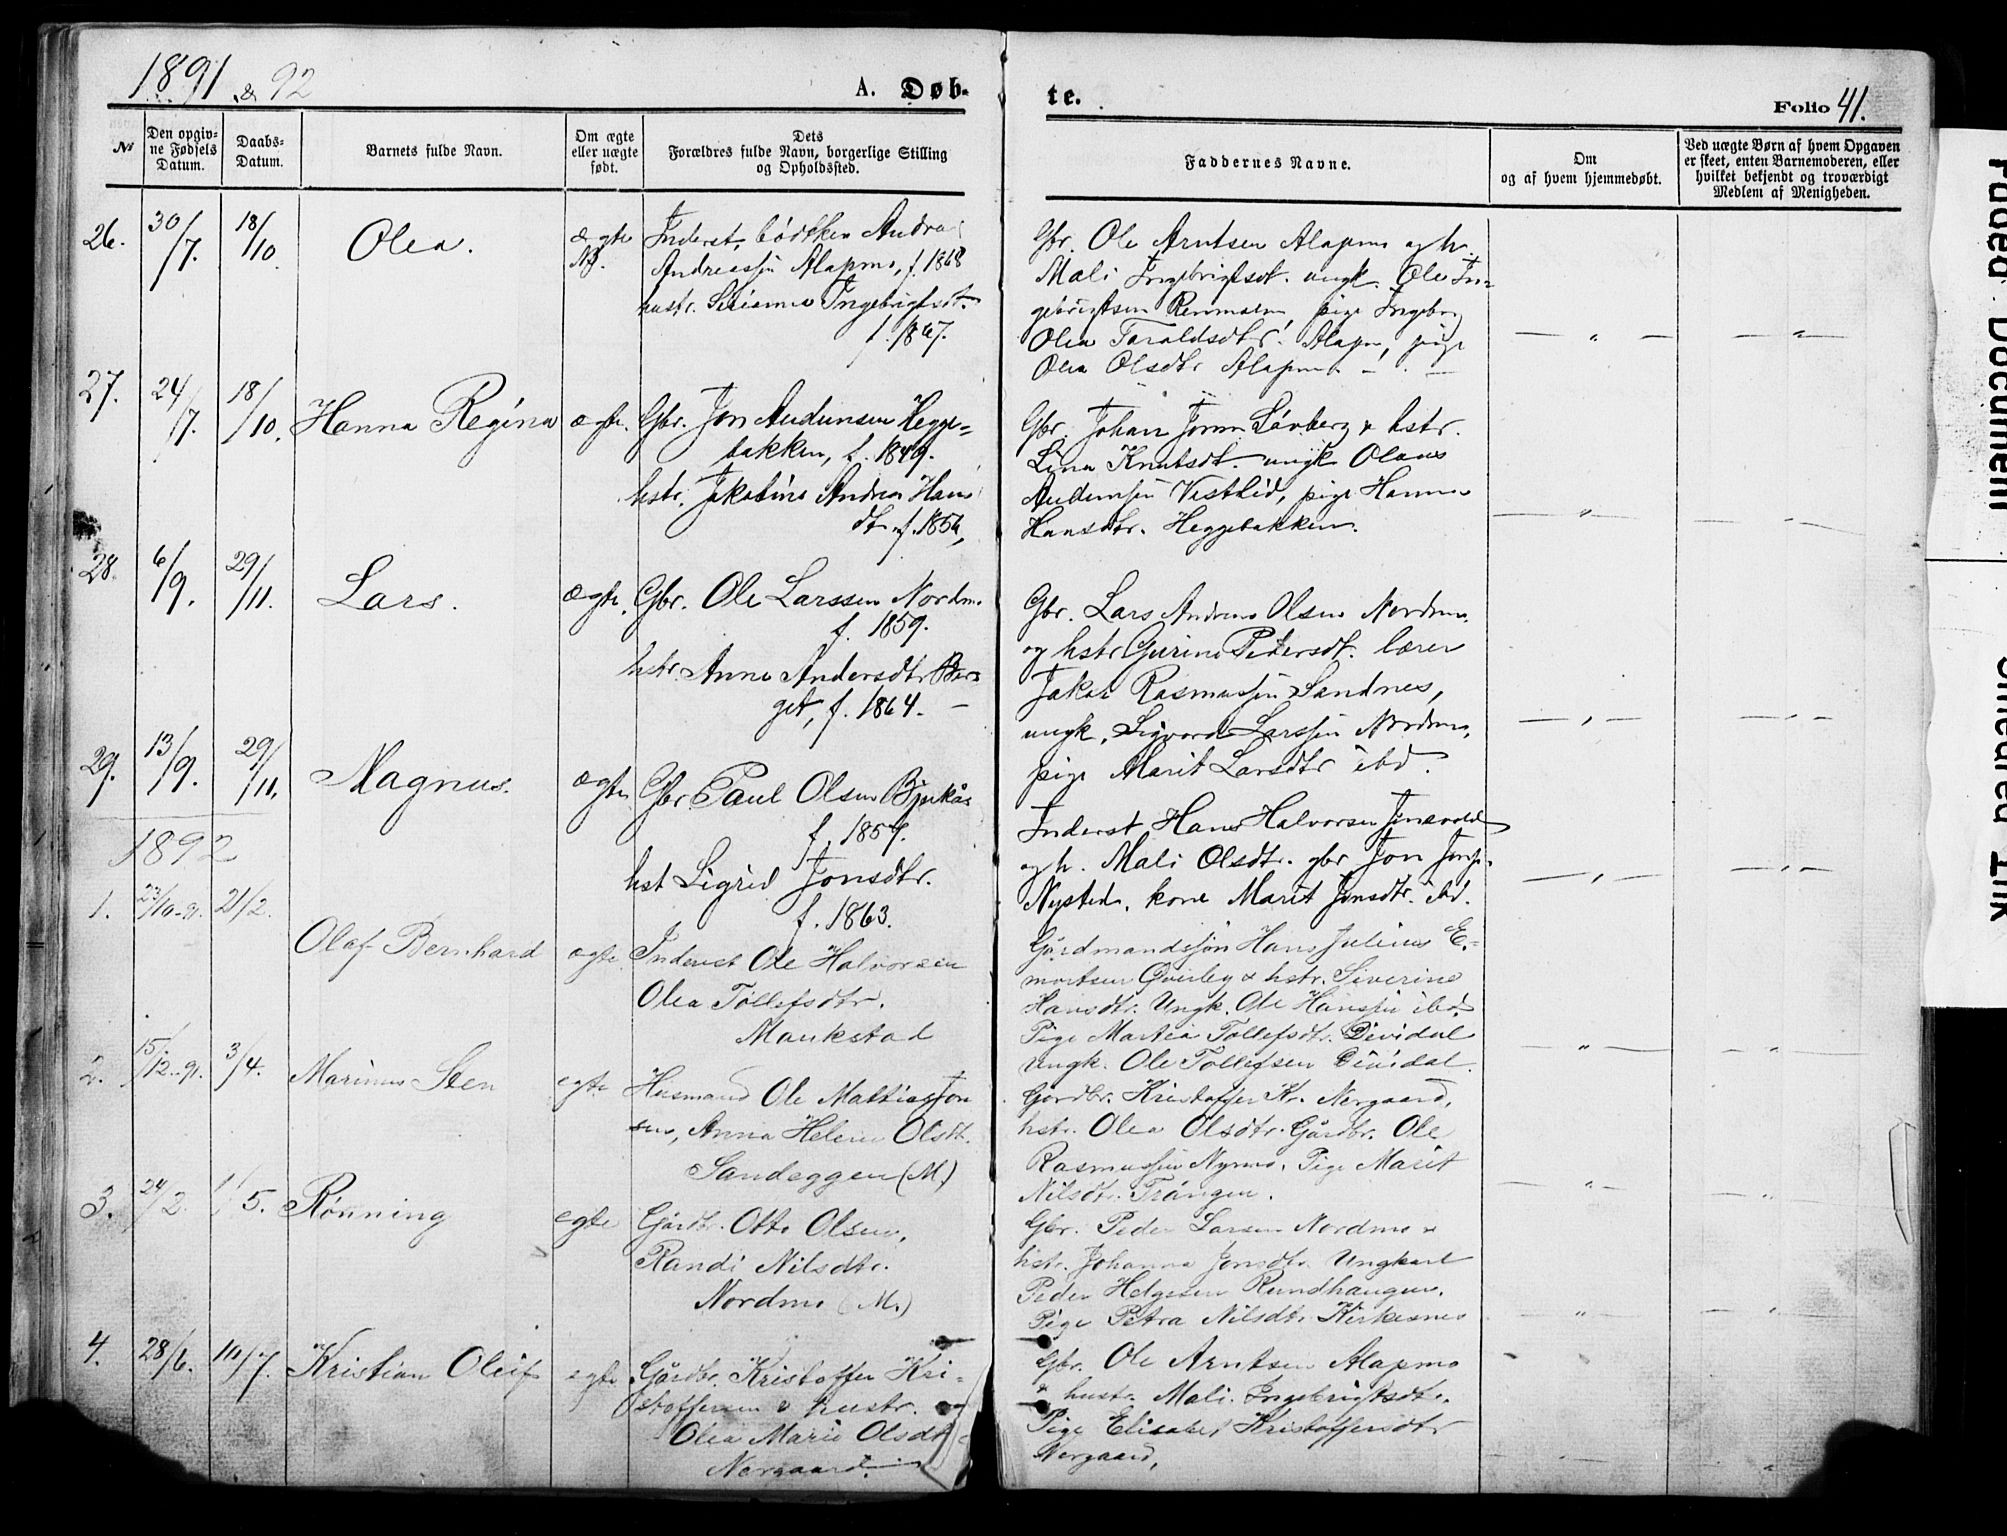 1891 & 92
A. Døb-
te.
Folio 41.
№
Den opgiv-
ne Fødsels
Datum.
Daabs-
Datum.
Barnets fulde Navn.
Om ægte
eller uægte
født.
Dets
Forældres fulde Navn, borgerlige Stilling
og Opholdssted.
Faddernes Navne.
Om
og af hvem hjemmedøbt.
Ved uægte Børn af hvem Opgaven
er skeet, enten Barnemoderen, eller
hvilket bekjendt og troværdigt
Medlem af Menigheden.
26. 30/7. 18/10. Olea. ægte
Inderst,
Alapmo, f. 1868
hustr. Ingebrigtsdt.
f. 1867.
Gbr. Ole Arntsen Alapmo og h.
Mali Ingebrigtsdt. ungk. Ole In-
gebrigtsen pige Ingeborg
Olea Taraldsdtr. Alapm, pige
Olea Olsdtr Alapmo
27. 24/7. 18/10. Hanna Regina ægte.
Gbr. Jon Audunsen Hegge-
bakken, f. 1849.
hstr. Jakobine Andrea Hans
dtr f. 1854,
Gbr. Johan Løvberg & hstr.
Lina Knutsdt. ungk Olaus
Audunsen Vestlid, pige Hanna
Hansdtr. Heggebakken.
28. 6/9. 29/11. Lars. ægte.
Gbr. Ole Larssen Nordmo
f. 1859.
hstr. Anne Andersdtr Ber-
get, f. 1864. —
Gbr. Lars Andreas Olsen Nordmo.
og hstr Gurine Pedersdt. lærer
Jakob Rasmussen Sandnes,
ungk. Sigvard Larssen Nordmo,
pige Marit Larsdtr ibd.
29. 13/9. 29/11. Magnus. ægte
Gbr. Paul Olsen Bjerkås
f. 1857.
hst Sigrid Jonsdtr.
f. 1863.
Inderst Hans Halvorsen
og h. Mali Olsdtr. gbr Jon
Nysted. kone Marit Jonsdtr. ibd.
1892
1. 23/10-91. 21/2. Olaf Bernhard ægte.
Inderst Ole Halvorsen
Olea Tollefsdtr.
Maukstad
Gårdmandssøn Hans Julius E-
mortsen Qverley & hstr. Siverine
Hansdtr. Ungk. Ole Hanssen ibd.
Pige Martea Tollefsdtr. Dividal
Ungk. Ole Tollefsen Dividal.
2. 15/12-91. 3/4. Marinus Sten egte
Husmand Ole Mattias Jon
sen, Anna Helene Olsdt.
Sandeggen (M.)
Gårdbr. Kristoffer Kr. Nergaard,
hstr. Olea Olsdtr. Gårdbr. Ole
Rasmussen Nymo, Pige Marit
Nilsdtr. Trangen.
3. 24/2. 1/5. Rønning egte
Gårdbr. Otto Olsen,
Randi Nilsdtr.
Nordmo (M.)
Gbr. Peder Larsen Nordmo &
hstr. Johanna Jonsdtr Ungkarl
Peder Helgesen Rundhaugen.
Pige Petra Nilsdtr Kirkesnes
4. 28/6. 10/7. Kristian Oluf egte
Gårdbr. Kristoffer Kri-
stoffersen & hustr.
Olea Marie Olsdt
Nergaard.
Gbr. Ole Arntsen Alapmo
& hustr. Mali Ingebrigtsdtr.
Pige Elisabet Kristoffersdtr
Nergaard.
Faded Document
Smeared Ink